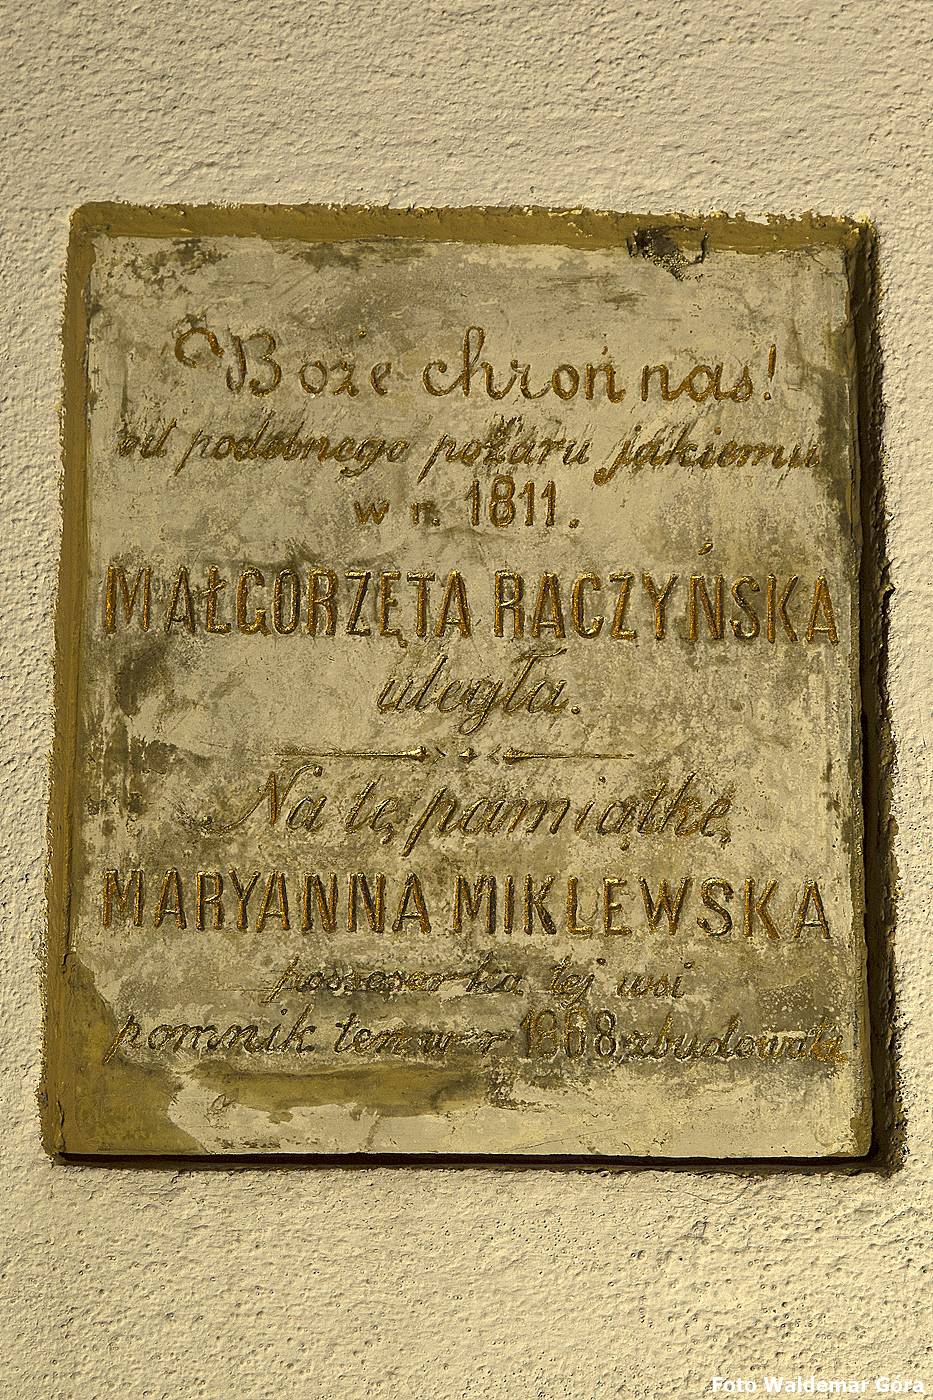 Boże chroń nas!
od podobnego pożaru jakiemu
w r. 1811.
MAŁGORZĘTA RACZYŃSKA
uległa.
Na tę pamiątkę
MARYANNA MIKLEWSKA
possesorka tej wsi
pomnik ten w r 1868 zbudowała
Foto Waldemar Góra